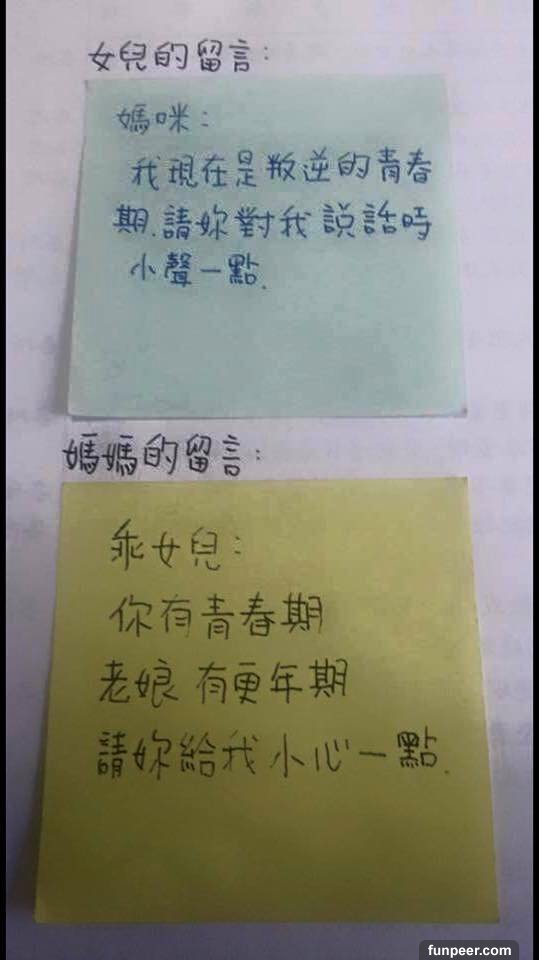 女兒的留言:
媽咪:
我現在是叛逆的青春
期.請妳對我說話時
小聲一點.
媽媽的留言:
乖女兒:
你有青春期
老娘有更年期
請妳給我小心一點.
funpeer.com